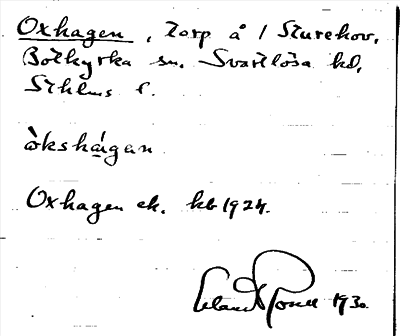 Oxhagen, torp å / Sturehov,
Botkyrka sn. Svartlösa hd,
Sthlms l.
òkshá̱gan
Oxhagen ek. kb 1924.
1930.